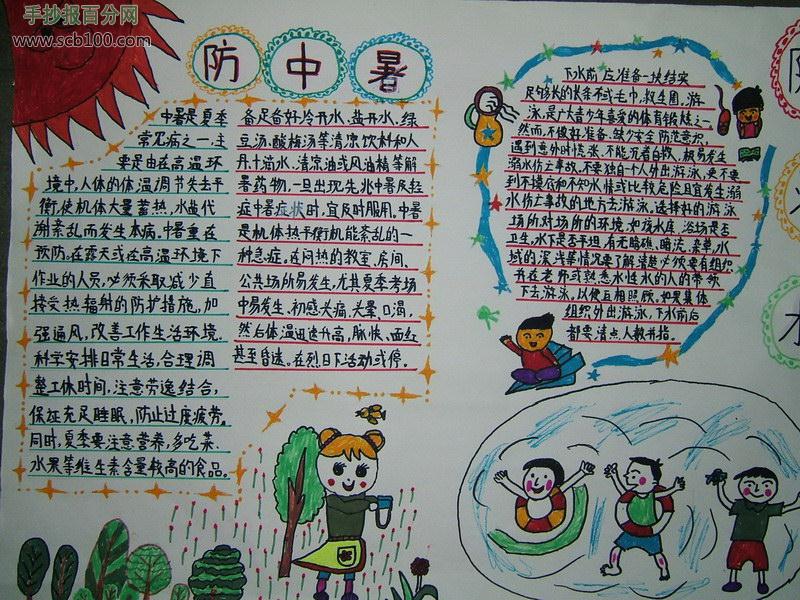 手抄报百分网
www.scb100.com
防中暑
中暑是夏季
常见病之一,主
要是由在高温环
境中,人体的体温调节失去平
衡,使机体大量蓄热,水盐代
谢紊乱而发生本病,中暑重在
预防。在露天或在高温环境下
作业的人员,必须采取减少直
接受热辐射的防护措施,加
强通风,改善工作生活环境.
科学安排日常生活,合理调
整工休时间,注意劳逸结合,
保证充足睡眠,防止过度疲劳.
同时,夏季要注意营养,多吃菜.
水果等维生素含量较高的食品。
备足备好冷开水,盐开水,绿
豆汤.酸梅汤等清凉饮料和人
丹十滴水.清凉油或风油精等解
暑药物,一旦出现先兆中暑及轻
症中暑症状时,宜及时服用.中暑
是机体热平衡机能紊乱的一
种急症,在闷热的教室,房间.
公共场所易发生,尤其夏季考场
中易发生,初感头痛,头晕口渴,
然后体温迅速升高,脉快、面红
甚至昏迷.在烈日下活动或停.
下水前应准备一块结实
足够长的长条布或毛巾,救生圈,游
泳,是广大青少年喜爱的体育锻炼之一
然而,不做好准备.缺少安全防范意识,
遇到意外时慌张、不能沉着自救、极易发生
溺水伤亡事故,不要独自一个人外出游泳,更不要
到不摸底和不知水情或比较危险且宜发生溺
水伤亡事故的地方去游泳,选择好的游泳
场所,对场所的环境,如该水库、浴场是否
卫生,水下是否平坦,有无暗礁、暗流、杂草,水
域的深浅等情况要了解清楚必须要有组织
并在老师或熟悉水性水的人的带领
下去游泳,以便互相照顾,如果集体
组织外出游泳,下水前后
都要清点人数并指.
水